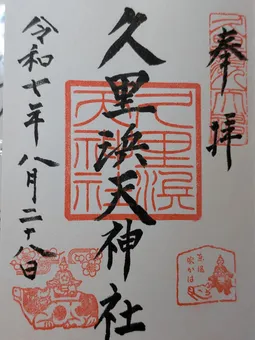 奉拝
久里浜天神社
令和七年八月二十八日
久里浜
天神社
京浪